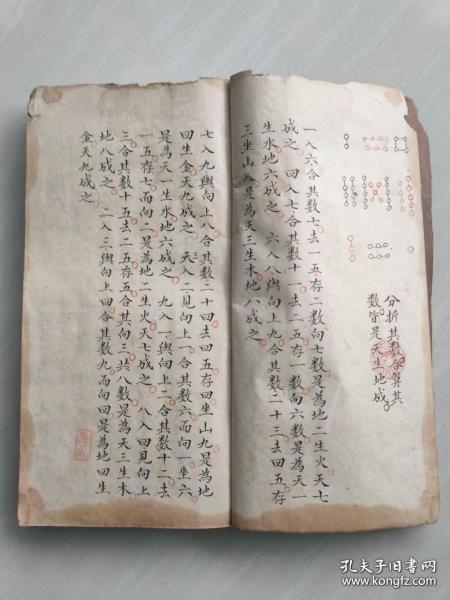 分折其數祭算其
數皆是天生地成
一入六合其數七去一五存二數向七數是為地二生火天七
成之 四入七合其數十一去二五存一數向六數是為天一
生水地六成之 六入八與向上九合其數二十三去四五存
三坐山八是為天三生木地八成之
七入九與向上八合其數二十四去四五存四坐山九是為地
四生金天九成之 天入二見向上一合其數六而向一坐六
是為天一生水地六成之 九入一與向上二合其數十二去
一五存七而向二是為地二生火天七成之 八入四見向上
三合其數十五去二五存五合其向三共八數是為天三生木
地八成之 二入三與向上四合其數九而向四是為地四生
金天九成之
孔夫子旧书网
www.kongfz.com